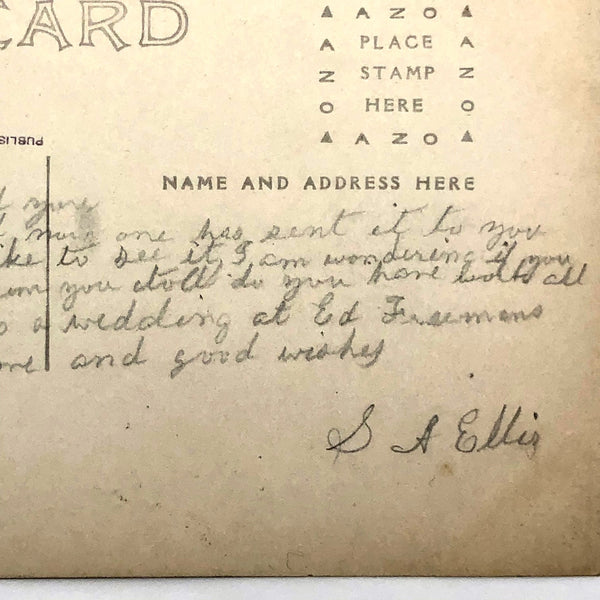 CARD
▲ A Z O ▲
A PLACE A
Z STAMP Z
O HERE O
▲ A Z O ▲
PUBLIS
NAME AND ADDRESS HERE
you
one has sent it to you
ike to see it I am wondering if you
you do you have all
a wedding at Ed Freemans
me and good wishes
S A Ellis